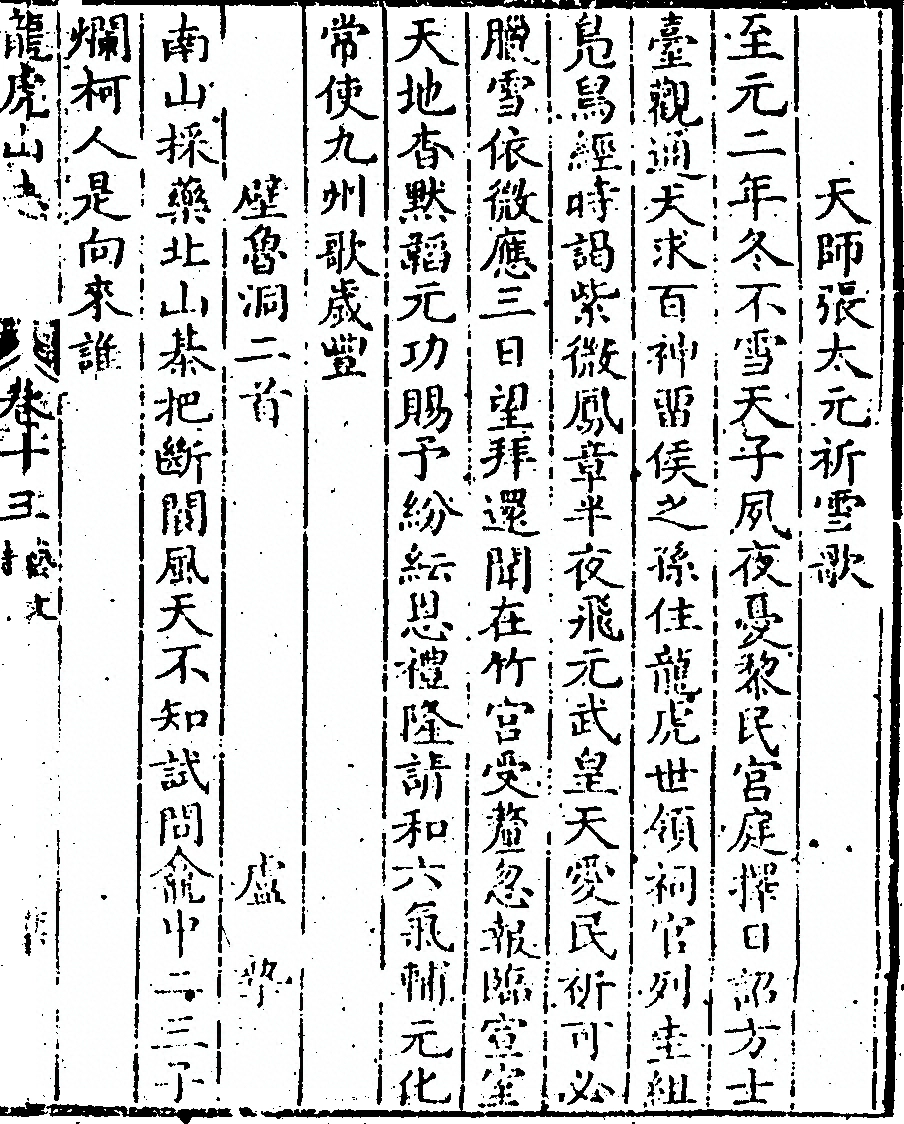 天師張太元祈雪歌
至元二年冬不雪天子夙夜憂黎民宫庭擇日詔方士
臺觀通天求百神畱侯之孫住龍虎世領祠官列圭組
鳧舃經時謁紫微鳳章半夜飛元武皇天愛民祈可必
臘雪依微應三日望拜還聞在竹宫受釐忽報臨宣室
天地杳默韜元功賜予紛紜恩禮隆請和六氣輔元化
常使九州歌歲豐
壁魯洞二首 盧摯
南山採藥北山棊把斷閬風天不知試問龕中二三子
爛柯人是向來誰
龍虎山志 卷十三 藝文 詩